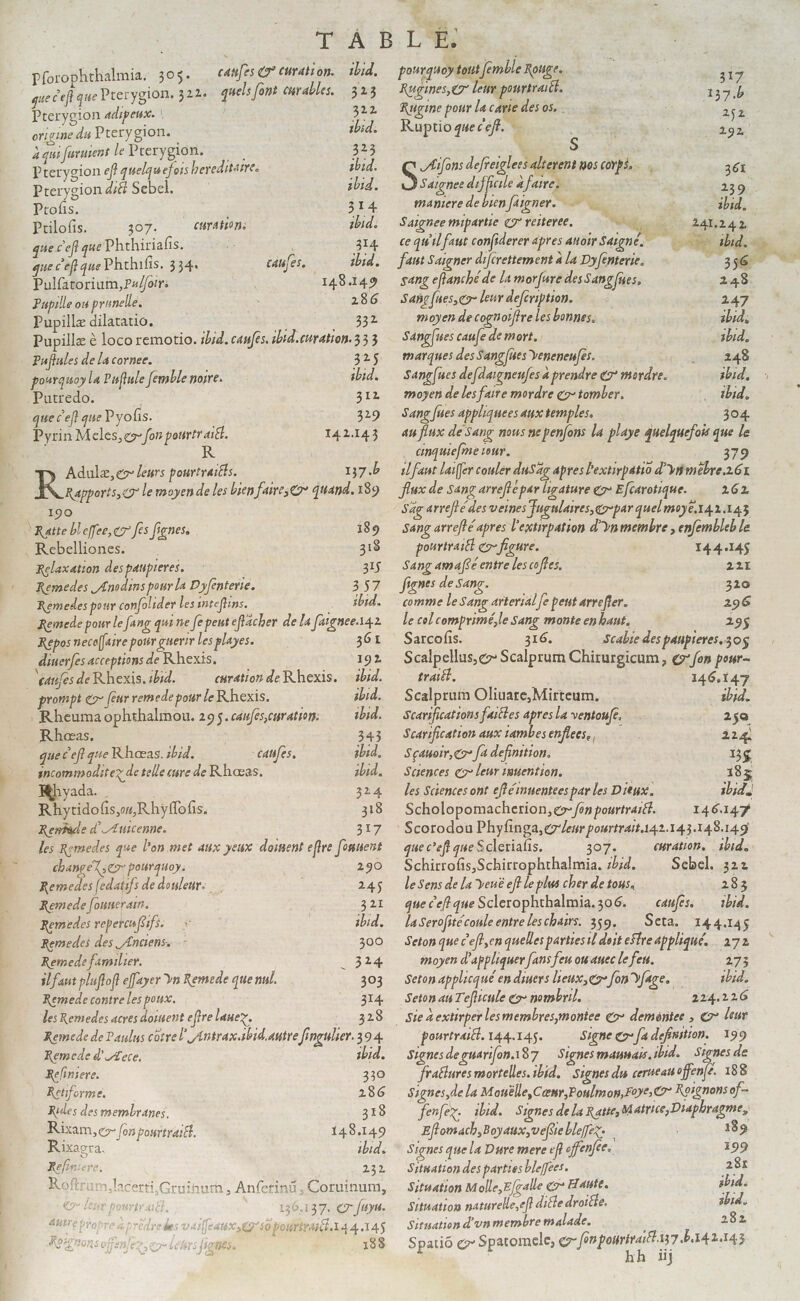 TABLE.
Pſorophthalmia. 305. cauſes & curation. ibid.
que c'eſt que Pterygion. 322. quels ſont curables. 323
Pterygion adipeux. 322
origine du Pterygion. ibid.
à qui ſuruient le Pterygion. 323
Pterygion eſt quelquefois hereditaire. ibid.
Pterygion dict Sebel. ibid.
Ptoſis. 314
Ptiloſis. 307. curation. ibid.
que c'eſt que Phthiriaſis. 314
que c'eſt que Phthiſis. 334. cauſes. ibid.
Pulſatorium, Pulſoir. 148.149
Pupille ou prunelle. 286
Pupillæ dilatatio. 332
Pupillæ è loco remotio. ibid. cauſes. ibid. curation. 333
Puſtules de la cornee. 325
pourquoy la Puſtule ſemble noire. ibid.
Putredo. 312
que c'eſt que Pyoſis. 329
Pyrin Meles, & ſon pourtraict. 142.143
R
RAdulæ, & leurs pourtraicts. 137.b
Rapports, & le moyen de les bien faire, & quand. 189
190
Ratte bleſſee, & ſes ſignes. 189
Rebelliones. 318
Relaxation des paupieres. 315
Remedes Anodins pour la Dyſenterie. 357
Remedes pour conſolider les inteſtins. ibid.
Remede pour le ſang qui ne ſe peut eſtācher de la ſaignee. 142
Repos neceſſaire pour guerir les playes. 361
diuerſes acceptions de Rhexis. 192
cauſes de Rhexis. ibid. curation de Rhexis. ibid.
prompt & ſeur remede pour le Rhexis. ibid.
Rheuma ophthalmou. 295. cauſes, curation. ibid.
Rhœas. 343
que c'eſt que Rhœas. ibid. cauſes. ibid.
incommoditez de telle cure de Rhœas. ibid.
Rhyada. 324
Rhytidoſis, ou, Rhyſſoſis. 318
Remede d'Auicenne. 317
les Remedes que l'on met aux yeux doiuent eſtre ſouuent
changez, & pourquoy. 290
Remedes ſedatifs de douleur. 245
Remede ſouuerain. 321
Remedes repercuſſifs. ibid.
Remedes des Anciens. 300
Remede familier. 324
il faut pluſtoſt eſſayer vn Remede que nul. 303
Remede contre les poux. 314
les Remedes acres doiuent eſtre lauez. 328
Remede de Paulus cōtre l'Antrax. ibid. autre ſingulier. 394
Remede d'Aëce. ibid.
Reſiniere. 330
Retiforme. 286
Rides des membranes. 318
Rixam, & ſon pourtraict. 148.149
Rixagra. ibid.
Reſiniere. 232
Roſtrum, lacerti, Gruinum, Anſerinū, Coruinum,
& leur pourtraict. 136.137. & ſuyu.
autre propre à prēdre les vaiſſeaux, & sō pourtraict. 144.145
Roignons offenſez, & leurs ſignes. 188
pourquoy tout ſemble Rouge. 317
Rugines, & leur pourtraict. 137.b
Rugine pour la carie des os. 252
Ruptio que c'eſt. 292
S
SAiſons deſreiglees alterent nos corps. 361
Saignee difficile à faire. 239
maniere de bien ſaigner. ibid.
Saignee mipartie & reiteree. 241.242
ce qu'il faut conſiderer apres auoir Saigné. ibid.
faut Saigner diſcrettement à la Dyſenterie. 356
ſang eſtanché de la morſure des Sangſues. 248
Sangſues, & leur deſcription. 247
moyen de cognoiſtre les bonnes. ibid.
Sangſues cauſe de mort. ibid.
marques des Sangſues veneneuſes. 248
Sangſues deſdaigneuſes à prendre & mordre. ibid.
moyen de les faire mordre & tomber. ibid.
Sangſues appliquees aux temples. 304
au flux de Sang nous ne penſons la playe quelquefois que le
cinquieſme iour. 379
il faut laiſſer couler du Sāg apres l'extirpatiō d'vn mēbre. 261
flux de Sang arreſté par ligature & Eſcarotique. 262
Sāg arreſté des veines Jugulaires, & par quel moyē. 142.143
Sang arreſté apres l'extirpation d'vn membre, enſemble le
pourtraict & figure. 144.145
Sang amaſſé entre les coſtes. 221
ſignes de Sang. 320
comme le Sang arterial ſe peut arreſter. 296
le col comprimé, le Sang monte en haut. 295
Sarcoſis. 316. Scabie des paupieres. 305
Scalpellus, & Scalprum Chirurgicum, & ſon pour-
traict. 146.147
Scalprum Oliuare, Mirteum. ibid.
Scarifications faictes apres la ventouſe. 250
Scarification aux iambes enflees. 224
Sçauoir, & ſa definition. 135
Sciences & leur inuention. 185
les Sciences ont eſté inuentees par les Dieux. ibid.
Scholopomacherion, & ſon pourtraict. 146.147
Scorodou Phyſinga, & leur pourtrait. 142.143.148.149
que c'eſt que Scleriaſis. 307. curation. ibid.
Schirroſis, Schirrophthalmia. ibid. Sebel. 322
le Sens de la veuë eſt le plus cher de tous. 283
que c'eſt que Sclerophthalmia. 306. cauſes. ibid.
la Seroſité coule entre les chairs. 359. Seta. 144.145
Seton que c'eſt, en quelles parties il doit eſtre appliqué. 272
moyen d'appliquer ſans feu ou auec le feu. 273
Seton applicqué en diuers lieux, & ſon vſage. ibid.
Seton au Teſticule & nombril. 224.226
Sie à extirper les membres, montee & demontee, & leur
pourtraict. 144.145. Signe & ſa definition. 199
Signes de guariſon. 187 Signes mauuais. ibid. Signes de
fractures mortelles. ibid. Signes du cerueau offenſé. 188
Signes, de la Mouëlle, Cœur, Poulmon, Foye, & Roignons of-
fenſez. ibid. Signes de la Ratte, Matrice, Diaphragme,
Eſtomach, Boyaux, veſſie bleſſez. 189
Signes que la Dure mere eſt offenſee. 199
Situation des parties bleſſees. 281
Situation Molle, Eſgalle & Haute. ibid.
Situation naturelle, eſt dicte droicte. ibid.
Situation d'vn membre malade. 282
Spatiō & Spatomele, & ſon pourtraict. 137.b.142.143
hh iij